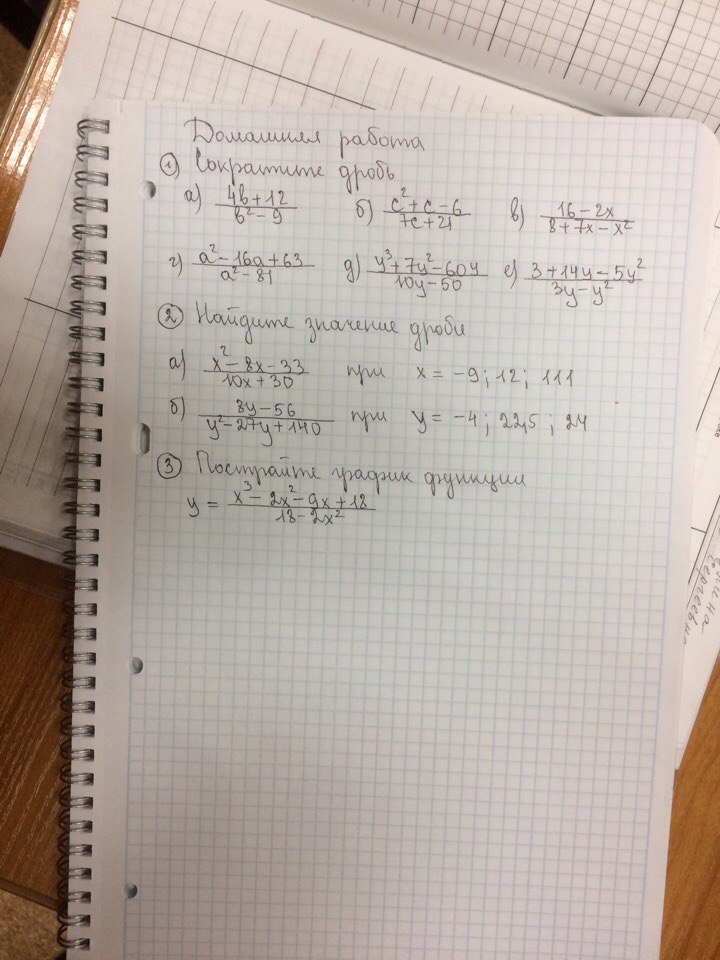 Домашняя работа
① Сократите дробь
а) (4b+12)/(b²-9) б) (c²+c-6)/(7c+21) в) (16-2x)/(8+7x-x²)
г) (a²-16a+63)/(a²-81) д) (y³+7y²-60y)/(10y-50) е) (3+14y-5y²)/(3y-y²)
② Найдите значение дроби
а) (x²-8x-33)/(10x+30) при x = -9; 12; 111
б) (8y-56)/(y²-27y+140) при y = -4; 22,5; 24
③ Построй­те график функции
y = (x³-2x²-9x+18)/(18-2x²)